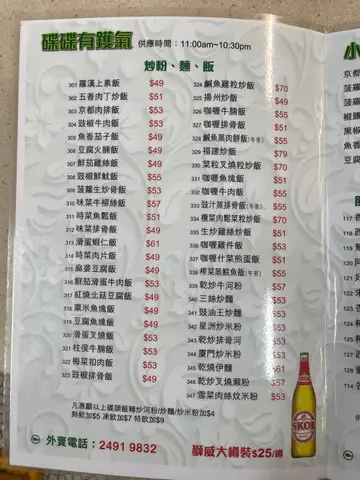 碟碟有鑊氣
供應時間：11:00am~10:30pm
炒粉、麵、飯
301 羅漢上素飯 $49
302 五香肉丁炒飯 $51
303 京都肉排飯 $53
304 豉椒牛肉飯 $53
305 魚香茄子飯 $49
306 豆腐火腩飯 $49
307 鮮茄雞絲飯 $49
308 豉椒鮮魷飯 $55
309 菠蘿生炒骨飯 $53
310 味菜牛柳絲飯 $57
311 時菜魚鬆飯 $51
312 味菜排骨飯 $49
313 滑蛋蝦仁飯 $61
314 時菜肉片飯 $49
315 麻婆豆腐飯 $49
316 鮮茄滑蛋牛肉飯 $53
317 紅燒北菇豆腐飯 $49
318 粟米魚塊飯 $49
319 豆腐魚塊飯 $49
320 滑蛋叉燒飯 $53
321 柱侯牛腩飯 $53
322 梅菜扣肉飯 $53
323 豉椒排骨飯 $49
324 鹹魚雞粒炒飯 $70
325 揚州炒飯 $51
326 咖喱牛腩飯 $55
327 咖喱排骨飯 $51
328 鹹魚蒸肉餅飯(午市) $55
329 福建炒飯 $79
330 菜粒叉燒炒飯 $70
331 咖喱魚塊飯 $51
332 咖喱牛肉飯 $55
333 豉汁蒸排骨飯(午市) $55
334 欖菜肉鬆菜粒炒飯 $70
335 生炒雞絲炒飯 $51
336 咖喱雞件飯 $53
337 咖喱什菜煎蛋飯 $51
338 榨菜蒸鯇魚飯(午市) $55
339 乾炒牛河粉 $57
340 三絲炒麵 $53
341 豉油王炒麵 $53
342 星洲炒米粉 $53
343 乾炒排骨河 $53
344 廈門炒米粉 $53
345 乾燒伊麵 $61
346 乾炒叉燒瀨粉 $57
347 雪菜肉絲炆米粉 $53
凡惠顧以上碟頭飯轉炒河粉/炒麵/炒米粉加$4
熱飲加$5 凍飲加$7 特飲加$9
外賣電話：2491 9832
獅威大樽裝$25/樽
SKOL